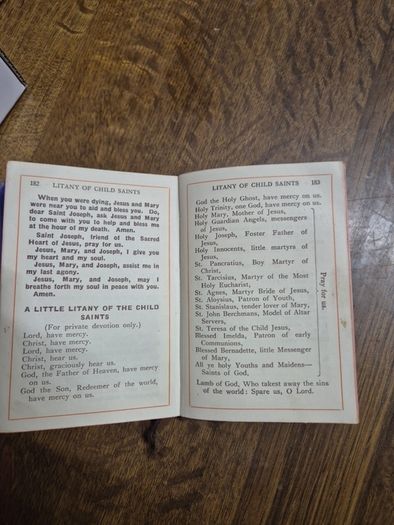 182 LITANY OF CHILD SAINTS
When you were dying, Jesus and Mary
were near you to aid and bless you. Do,
dear Saint Joseph, ask Jesus and Mary
to come with you to help and bless me
at the hour of my death. Amen.
Saint Joseph, friend of the Sacred
Heart of Jesus, pray for us.
Jesus, Mary, and Joseph, I give you
my heart and my soul.
Jesus, Mary, and Joseph, assist me in
my last agony.
Jesus, Mary, and Joseph, may I
breathe forth my soul in peace with you.
Amen.
A LITTLE LITANY OF THE CHILD
SAINTS
(For private devotion only.)
Lord, have mercy.
Christ, have mercy.
Lord, have mercy.
Christ, hear us.
Christ, graciously hear us.
God, the Father of Heaven, have mercy
on us.
God the Son, Redeemer of the world,
have mercy on us.
LITANY OF CHILD SAINTS 183
God the Holy Ghost, have mercy on us.
Holy Trinity, one God, have mercy on us.
Holy Mary, Mother of Jesus,
Holy Guardian Angels, messengers
of Jesus,
Holy Joseph, Foster Father of
Jesus,
Holy Innocents, little martyrs of
Jesus,
St. Pancratius, Boy Martyr of
Christ,
St. Tarcisius, Martyr of the Most
Holy Eucharist,
St. Agnes, Martyr Bride of Jesus,
St. Aloysius, Patron of Youth,
St. Stanislaus, tender lover of Mary,
St. John Berchmans, Model of Altar
Servers,
St. Teresa of the Child Jesus,
Blessed Imelda, Patron of early
Communions,
Blessed Bernadette, little Messenger
of Mary,
All ye holy Youths and Maidens—
Saints of God,
Pray for us.
Lamb of God, Who takest away the sins
of the world: Spare us, O Lord.